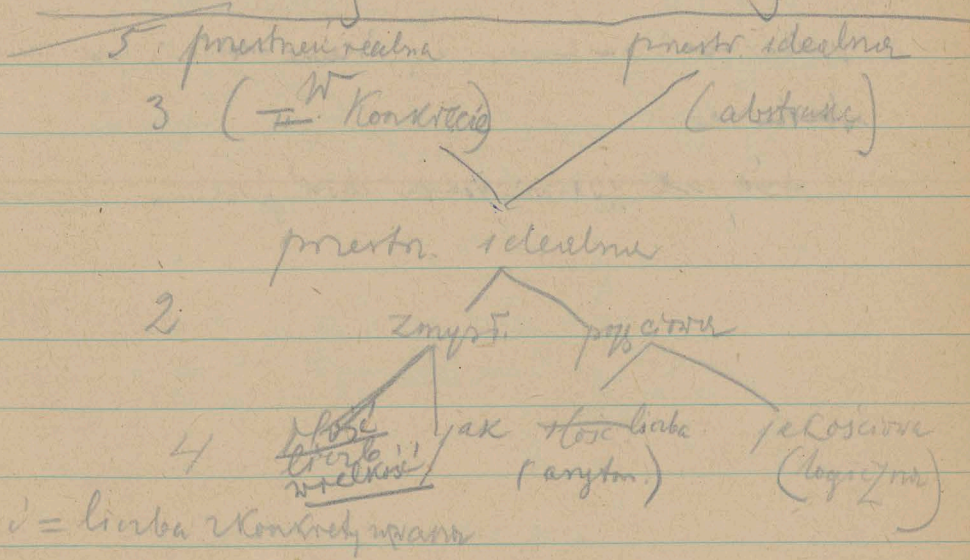 5 przestrzeń realna przestr. idealna
3 (w Konkrecie) (abstrakc.)
przestr. idealna
2 zmysł. pojęciowa
4 ilość liczb wielkość jak ilość liczba jakościowa
(arytm.) (logiczna)
= liczba skonkretyzowana